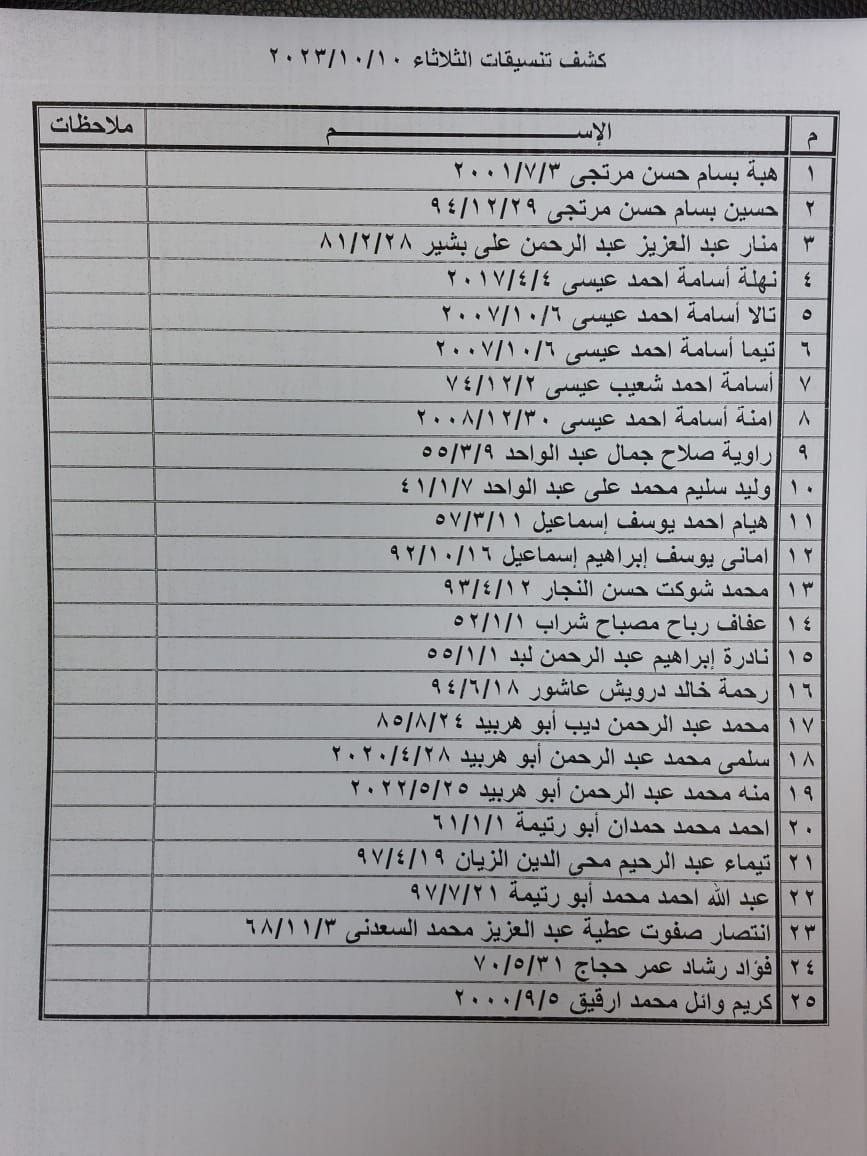 كشف تنسيقات الثلاثاء ٢٠٢٣/١٠/١٠
م الإســـــــم ملاحظات
١ هبة بسام حسن مرتجى ٢٠٠١/٧/٣
٢ حسين بسام حسن مرتجى ٩٤/١٢/٢٩
٣ منار عبد العزيز عبد الرحمن على بشير ٨١/٢/٢٨
٤ نهلة أسامة احمد عيسى ٢٠١٧/٤/٤
٥ تالا أسامة احمد عيسى ٢٠٠٧/١٠/٦
٦ تيما أسامة احمد عيسى ٢٠٠٧/١٠/٦
٧ أسامة احمد شعيب عيسى ٧٤/١٢/٢
٨ امنة أسامة احمد عيسى ٢٠٠٨/١٢/٣٠
٩ راوية صلاح جمال عبد الواحد ٥٥/٣/٩
١٠ وليد سليم محمد على عبد الواحد ٤١/١/٧
١١ هيام احمد يوسف إسماعيل ٥٧/٣/١١
١٢ امانى يوسف إبراهيم إسماعيل ٩٢/١٠/١٦
١٣ محمد شوكت حسن النجار ٩٣/٤/١٢
١٤ عفاف رباح مصباح شراب ٥٢/١/١
١٥ نادرة إبراهيم عبد الرحمن لبد ٥٥/١/١
١٦ رحمة خالد درويش عاشور ٩٤/٦/١٨
١٧ محمد عبد الرحمن ديب أبو هربيد ٨٥/٨/٢٤
١٨ سلمى محمد عبد الرحمن أبو هربيد ٢٠٢٠/٤/٢٨
١٩ منه محمد عبد الرحمن أبو هربيد ٢٠٢٢/٥/٢٥
٢٠ احمد محمد حمدان أبو رتيمة ٦١/١/١
٢١ تيماء عبد الرحيم محى الدين الزيان ٩٧/٤/١٩
٢٢ عبد الله احمد محمد أبو رتيمة ٩٧/٧/٢١
٢٣ انتصار صفوت عطية عبد العزيز محمد السعدنى ٦٨/١١/٣
٢٤ فؤاد رشاد عمر حجاج ٧٠/٥/٣١
٢٥ كريم وائل محمد ارقيق ٢٠٠٠/٩/٥